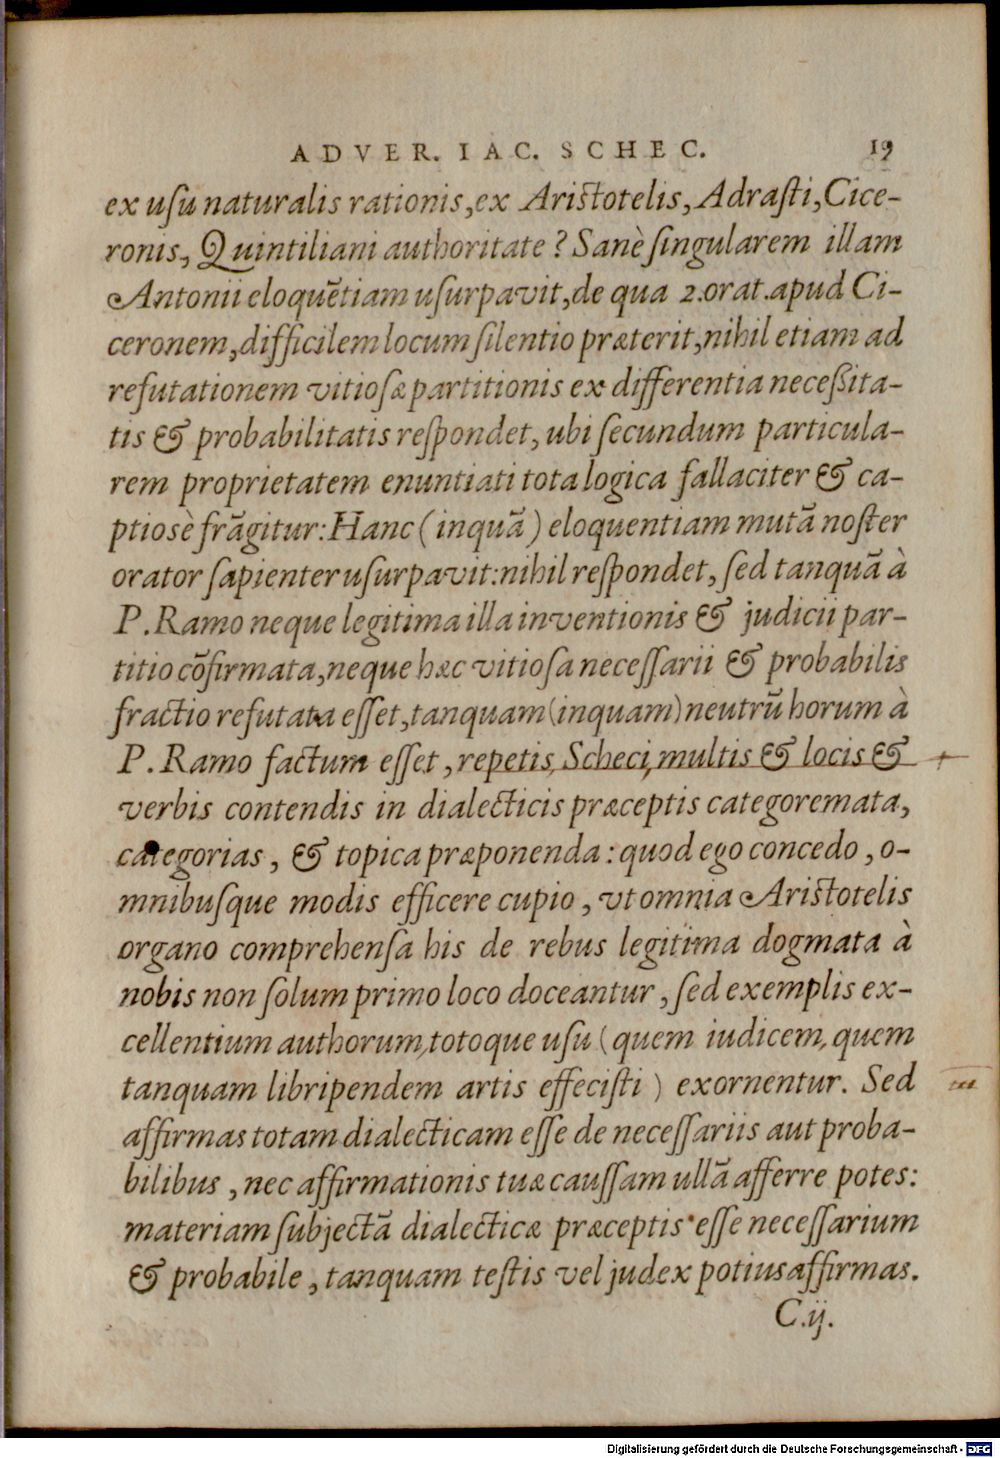 ADVER. IAC. SCHEC. 19
ex uſu naturalis rationis, ex Ariſtotelis, Adraſti, Cice-
ronis, Quintiliani authoritate? Sanè ſingularem illam
Antonii eloquẽtiam uſurpavit, de qua 2. orat. apud Ci-
ceronem, difficilem locum ſilentio præterit, nihil etiam ad
refutationem vitioſæ partitionis ex differentia neceßita-
tis & probabilitatis reſpondet, ubi ſecundum particula-
rem proprietatem enuntiati tota logica fallaciter & ca-
ptiosè frãgitur: Hanc (inquã) eloquentiam mutã noſter
orator ſapienter uſurpavit: nihil reſpondet, ſed tanquã à
P. Ramo neque legitima illa inventionis & judicii par-
titio cõfirmata, neque hæc vitioſa neceſſarii & probabilis
fractio refutata eſſet, tanquam (inquam) neutrũ horum à
P. Ramo factum eſſet, repetis, Scheci, multis & locis &
verbis contendis in dialecticis præceptis categoremata,
categorias, & topica præponenda: quod ego concedo, o-
mnibuſque modis efficere cupio, vt omnia Ariſtotelis
organo comprehenſa his de rebus legitima dogmata à
nobis non ſolum primo loco doceantur, ſed exemplis ex-
cellentium authorum, totoque uſu (quem iudicem, quem
tanquam libripendem artis effeciſti) exornentur. Sed
affirmas totam dialecticam eſſe de neceſſariis aut proba-
bilibus, nec affirmationis tuæ cauſſam ullã afferre potes:
materiam ſubjectã dialecticæ præceptis eſſe neceſſarium
& probabile, tanquam teſtis vel judex potius affirmas.
C.ij.
Digitalisierung gefördert durch die Deutsche Forschungsgemeinschaft - DFG